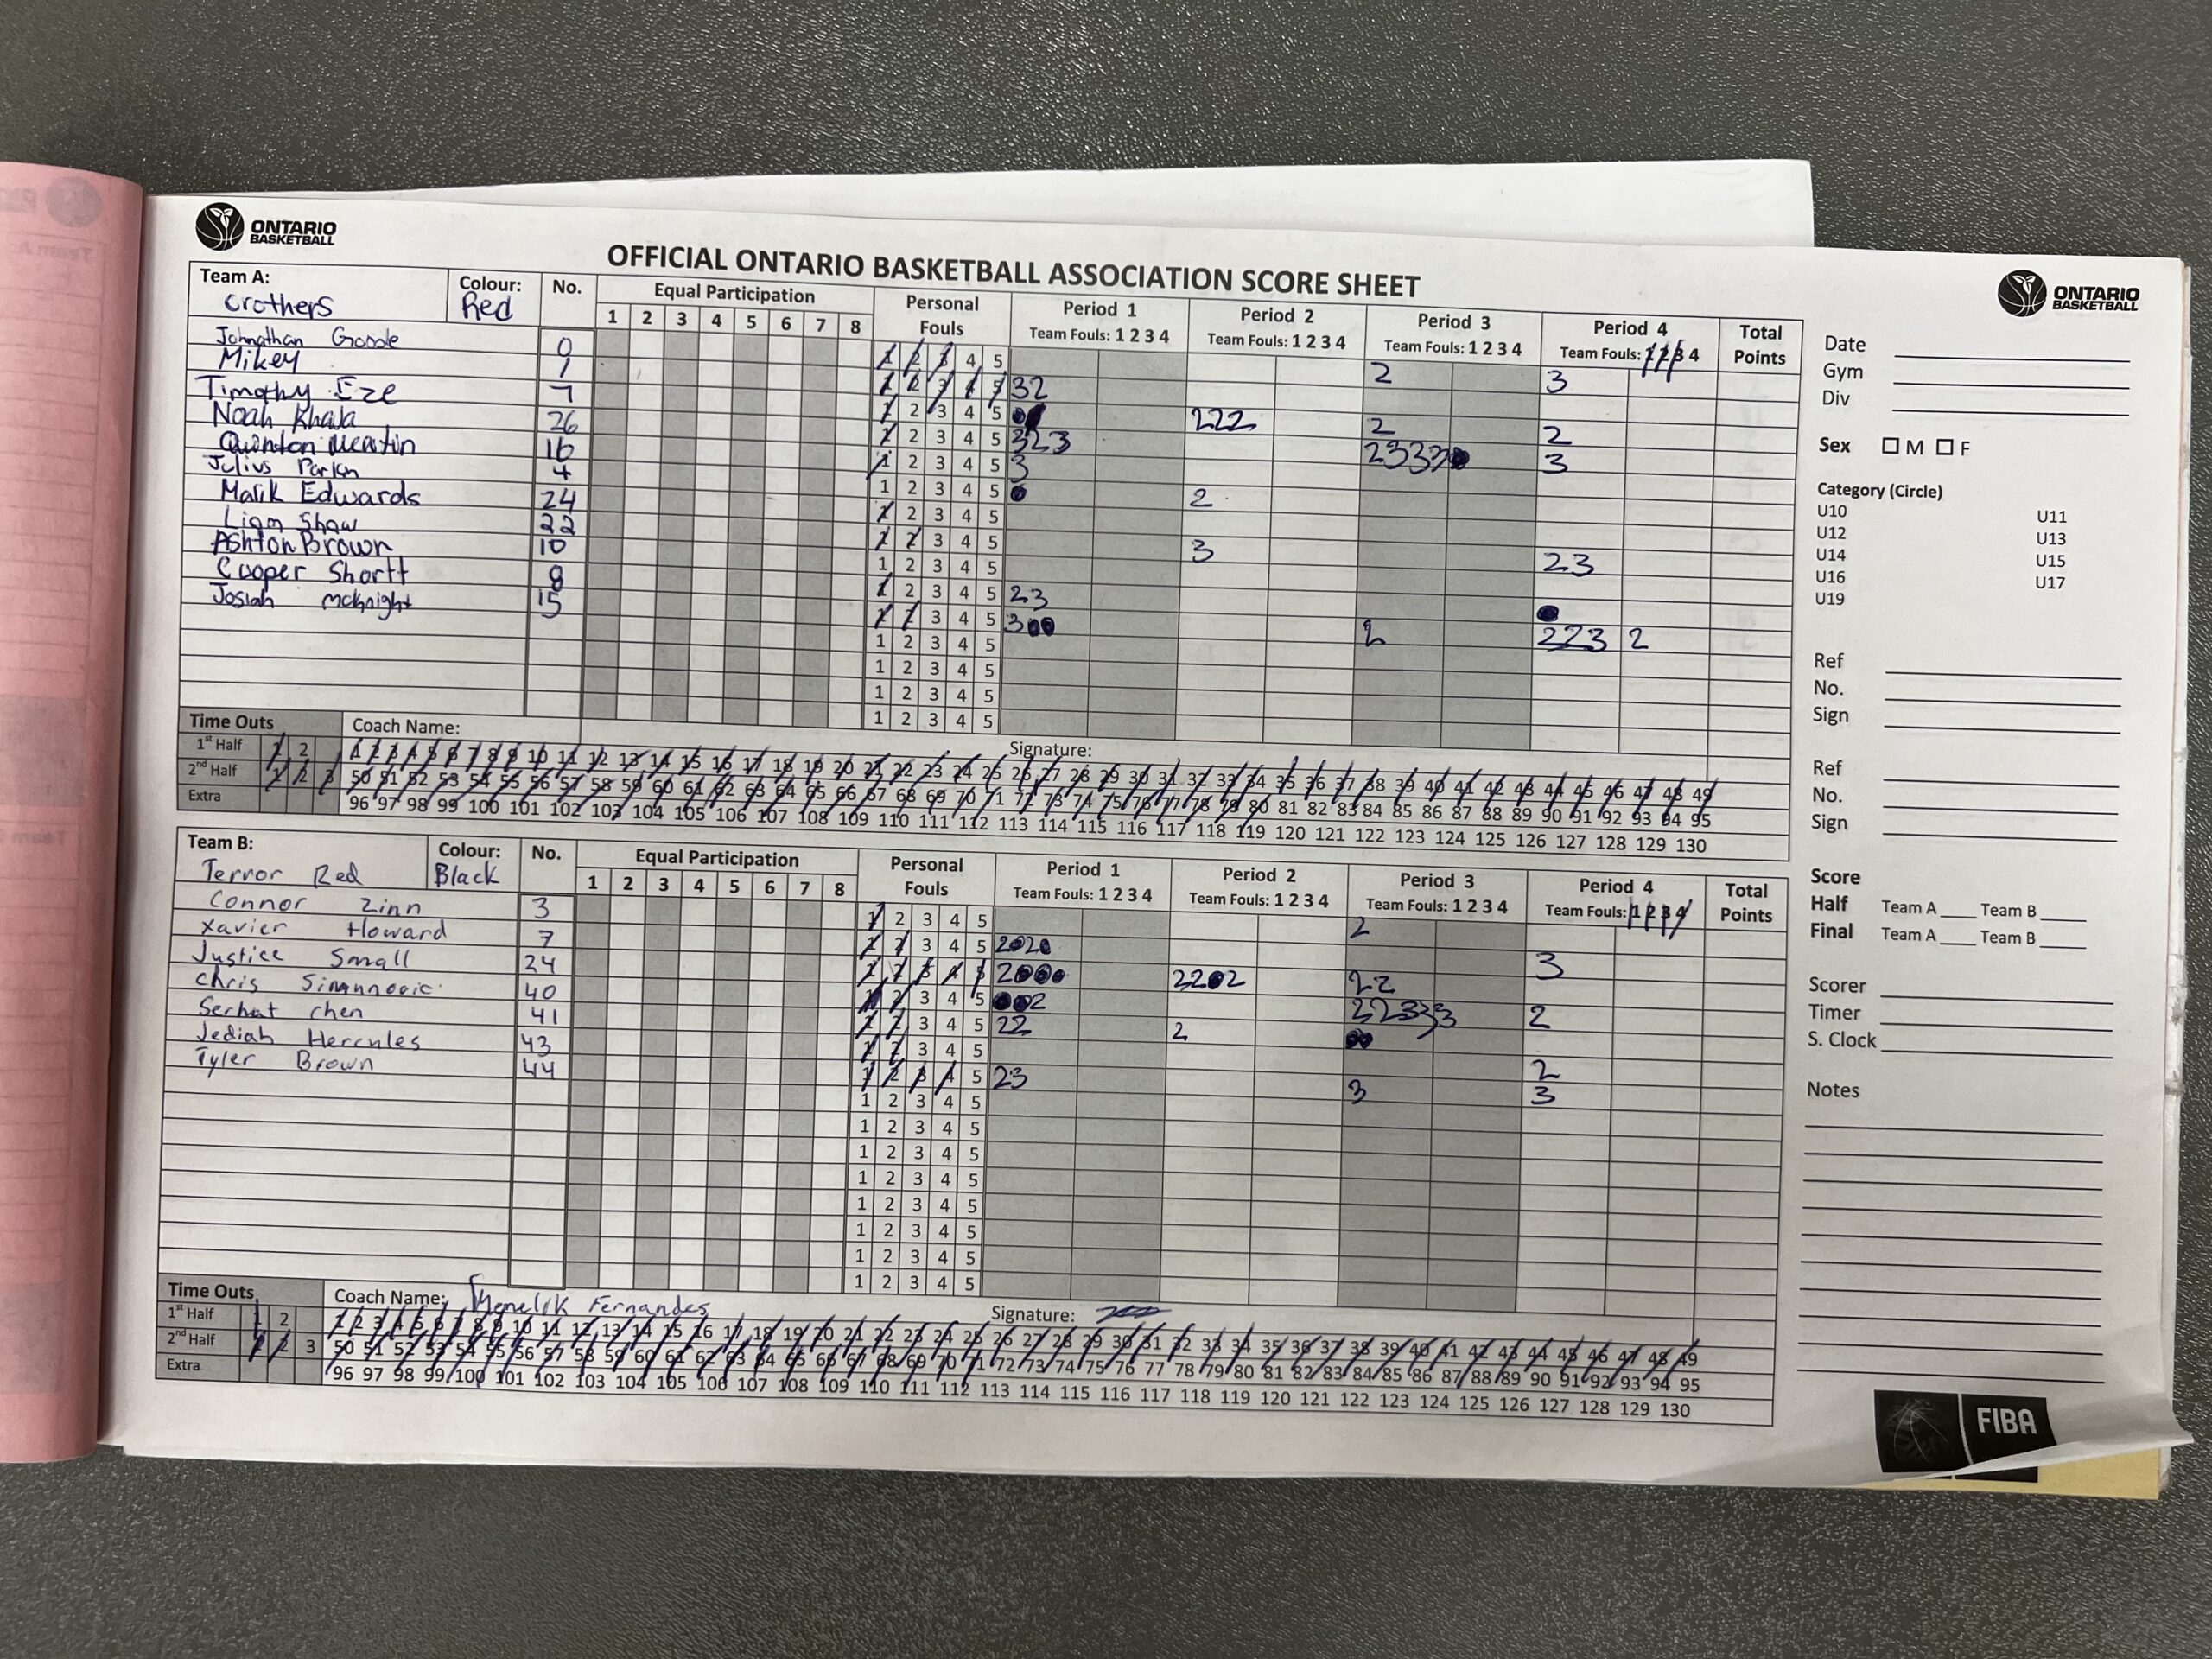 ONTARIO
BASKETBALL
OFFICIAL ONTARIO BASKETBALL ASSOCIATION SCORE SHEET
ONTARIO
BASKETBALL
Team A: Colour: No. Equal Participation Personal Fouls Period 1 Period 2 Period 3 Period 4 Total Points
Crothers Red 1 2 3 4 5 6 7 8 Team Fouls: 1 2 3 4 Team Fouls: 1 2 3 4 Team Fouls: 1 2 3 4 Team Fouls: 1 2 3 4
Johnathan Goode 0 1 2 3 4 5 2 3
Mikey 1 1 2 3 4 5 32
Timothy Eze 7 1 2 3 4 5 222 2 2
Noah Khaja 26 1 2 3 4 5 323 2333 3
Quinton 16 1 2 3 4 5 3
Julius 4 1 2 3 4 5 2
Malik Edwards 24 1 2 3 4 5
Liam Shaw 22 1 2 3 4 5 3 23
Ashton Brown 10 1 2 3 4 5
Cooper Shortt 8 1 2 3 4 5 23
Josiah McKnight 15 1 2 3 4 5 3 2 223 2
1 2 3 4 5
1 2 3 4 5
1 2 3 4 5
1 2 3 4 5
Time Outs Coach Name: Signature:
1st Half 1 2 1 2 3 4 5 6 7 8 9 10 11 12 13 14 15 16 17 18 19 20 21 22 23 24 25 26 27 28 29 30 31 32 33 34 35 36 37 38 39 40 41 42 43 44 45 46 47 48 49
2nd Half 1 2 3 50 51 52 53 54 55 56 57 58 59 60 61 62 63 64 65 66 67 68 69 70 71 72 73 74 75 76 77 78 79 80 81 82 83 84 85 86 87 88 89 90 91 92 93 94 95
Extra 96 97 98 99 100 101 102 103 104 105 106 107 108 109 110 111 112 113 114 115 116 117 118 119 120 121 122 123 124 125 126 127 128 129 130
Team B: Colour: No. Equal Participation Personal Fouls Period 1 Period 2 Period 3 Period 4 Total Points
Terror Red Black 1 2 3 4 5 6 7 8 Team Fouls: 1 2 3 4 Team Fouls: 1 2 3 4 Team Fouls: 1 2 3 4 Team Fouls: 1 2 3 4
Connor Zinn 3 1 2 3 4 5 2
Xavier Howard 7 1 2 3 4 5 2 2 3
Justice Small 24 1 2 3 4 5 2 22 2 22
Chris 40 1 2 3 4 5 2 22333 2
Serhat chen 41 1 2 3 4 5 22 2
Jediah Hercules 43 1 2 3 4 5 2
Tyler Brown 44 1 2 3 4 5 23 3 3
1 2 3 4 5
1 2 3 4 5
1 2 3 4 5
1 2 3 4 5
1 2 3 4 5
1 2 3 4 5
1 2 3 4 5
1 2 3 4 5
Time Outs Coach Name: Menelik Fernandes Signature:
1st Half 1 2 1 2 3 4 5 6 7 8 9 10 11 12 13 14 15 16 17 18 19 20 21 22 23 24 25 26 27 28 29 30 31 32 33 34 35 36 37 38 39 40 41 42 43 44 45 46 47 48 49
2nd Half 1 2 3 50 51 52 53 54 55 56 57 58 59 60 61 62 63 64 65 66 67 68 69 70 71 72 73 74 75 76 77 78 79 80 81 82 83 84 85 86 87 88 89 90 91 92 93 94 95
Extra 96 97 98 99 100 101 102 103 104 105 106 107 108 109 110 111 112 113 114 115 116 117 118 119 120 121 122 123 124 125 126 127 128 129 130
Date
Gym
Div
Sex M F
Category (Circle)
U10 U11
U12 U13
U14 U15
U16 U17
U19
Ref
No.
Sign
Ref
No.
Sign
Score
Half Team A Team B
Final Team A Team B
Scorer
Timer
S. Clock
Notes
FIBA